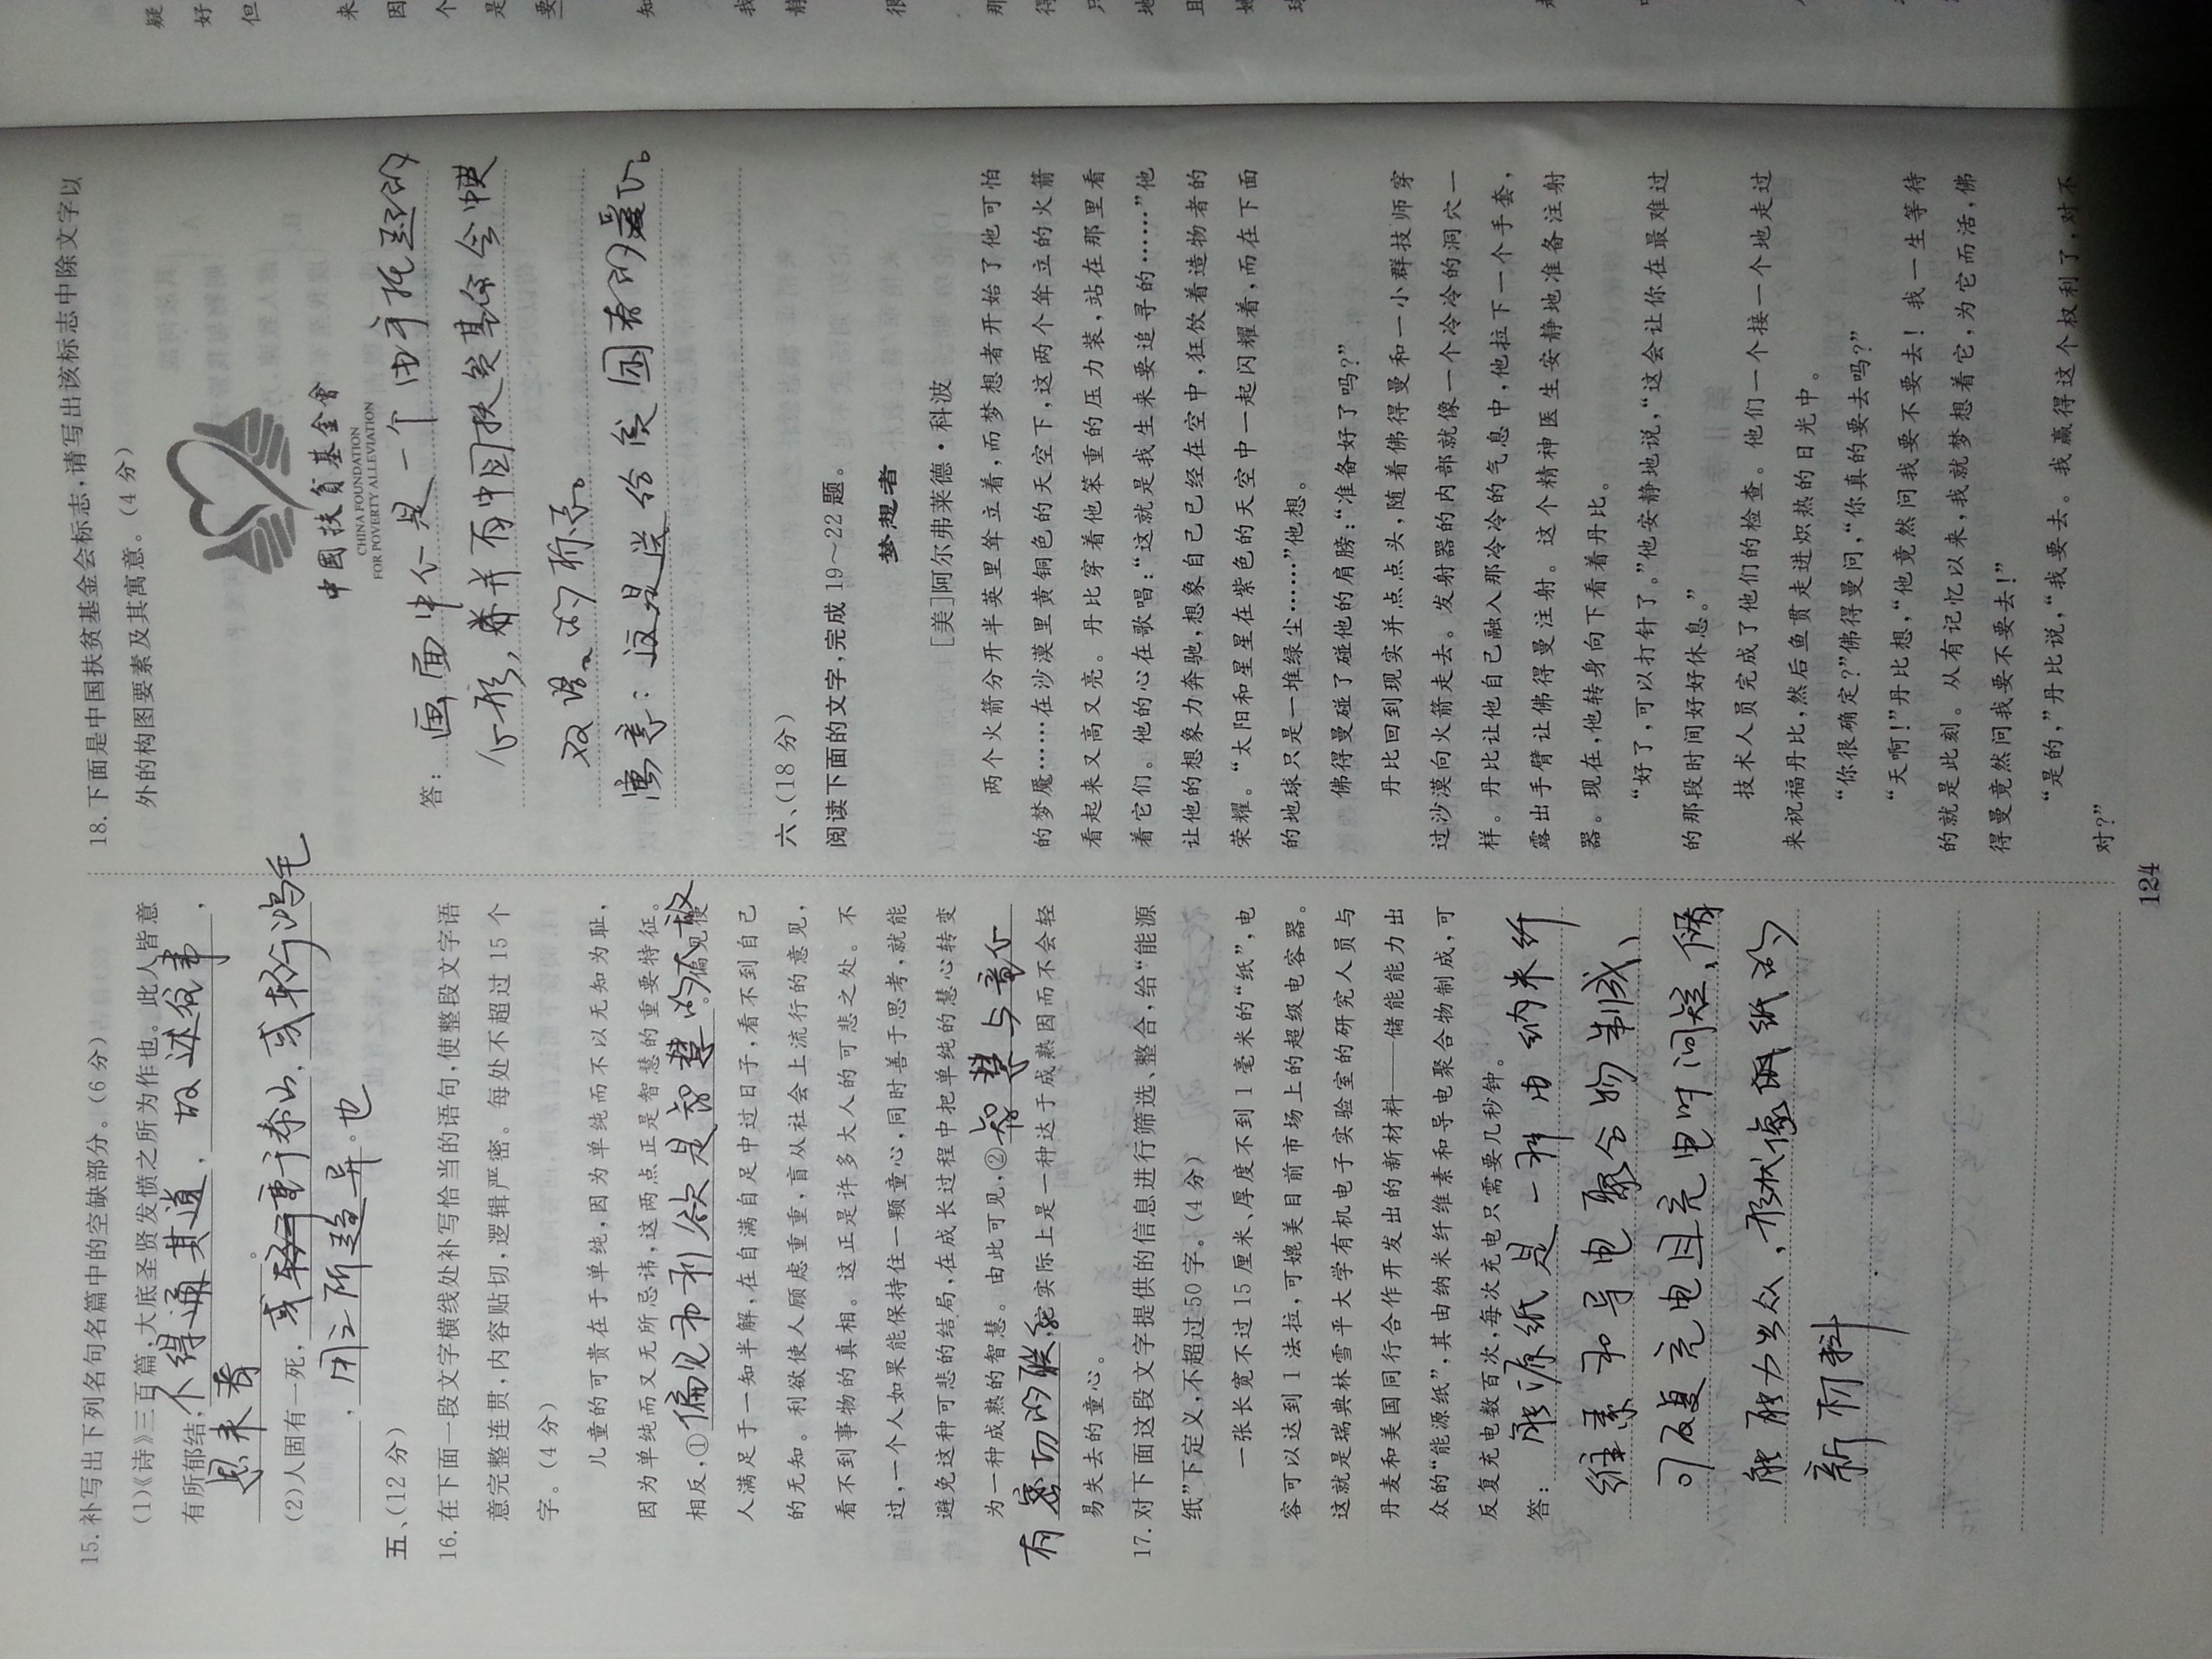 15. 补写出下列名句名篇中的空缺部分。(6 分)
(1)《诗》三百篇,大底圣贤发愤之所为作也。此人皆意
有所郁结,不得通其道,故述往事,
思来者。
(2)人固有一死,或重于泰山,或轻于鸿毛
,用之所趋异。也
五、(12 分)
16. 在下面一段文字横线处补写恰当的语句,使整段文字语
意完整连贯,内容贴切,逻辑严密。每处不超过 15 个
字。(4 分)
儿童的可贵在于单纯,因为单纯而不以无知为耻,
因为单纯而又无所忌讳,这两点正是智慧的重要特征。
相反,①偏见和利欲是智慧的大敌。偏见使
人满足于一知半解,在自满自足中过日子,看不到自己
的无知。利欲使人顾虑重重,盲从社会上流行的意见,
看不到事物的真相。这正是许多大人的可悲之处。不
过,一个人如果能保持住一颗童心,同时善于思考,就能
避免这种可悲的结局,在成长过程中把单纯的慧心转变
为一种成熟的智慧。由此可见,②智慧与童心
有密切的联系,它实际上是一种达于成熟因而不会轻
易失去的童心。
17. 对下面这段文字提供的信息进行筛选、整合,给“能源
纸”下定义,不超过 50 字。(4 分)
一张长宽不过 15 厘米、厚度不到 1 毫米的“纸”,电
容可以达到 1 法拉,可媲美目前市场上的超级电容器。
这就是瑞典林雪平大学有机电子实验室的研究人员与
丹麦和美国同行合作开发出的新材料——储能能力出
众的“能源纸”,其由纳米纤维素和导电聚合物制成,可
反复充电数百次,每次充电只需要几秒钟。
答: 能源纸是一种由纳米纤
维素和导电聚合物制成、
可反复充电且充电时间短,储
能能力出众,形状像纸的
新材料.
18. 下面是中国扶贫基金会标志,请写出该标志中除文字以
外的构图要素及其寓意。(4 分)
中國扶貧基金會
CHINA FOUNDATION
FOR POVERTY ALLEVIATION
答: 画面中心是一个由手托起的
心形,并有中国扶贫基金会中英
双语的标志。
寓意:这是送给贫困者的爱心。
六、(18 分)
阅读下面的文字,完成 19～22 题。
梦想者
[美]阿尔弗莱德·科波
两个火箭分开半英里耸立着,而梦想者开始了他可怕
的梦魇……在沙漠里黄铜色的天空下,这两个耸立的火箭
看起来又高又亮。丹比穿着他笨重的压力装,站在那里看
着它们。他的心在歌唱:“这就是我生来要追寻的……”他
让他的想象力奔驰,想象自己已经在空中,狂饮着造物者的
荣耀。“太阳和星星在紫色的天空中一起闪耀着,而在下面
的地球只是一堆绿尘……”他想。
佛得曼碰了碰他的肩膀:“准备好了吗?”
丹比回到现实并点点头,随着佛得曼和一小群技师穿
过沙漠向火箭走去。发射器的内部就像一个冷冷的洞穴一
样。丹比让他自己融入那冷冷的气息中,他拉下一个手套,
露出手臂让佛得曼注射。这个精神医生安静地准备注射
器。现在,他转身向下看着丹比。
“好了,可以打针了。”他安静地说,“这会让你在最难过
的那段时间好好休息。”
技术人员完成了他们的检查。他们一个接一个地走过
来祝福丹比,然后鱼贯走进炽热的日光中。
“你很确定?”佛得曼问,“你真的要去吗?”
“天啊!”丹比想,“他竟然问我要不要去! 我一生等待
的就是此刻。从有记忆以来,我就梦想着它,为它而活,佛
得曼竟然问我要不要去!”
“是的,”丹比说,“我要去。我赢得这个权利了,对不
对?”
124